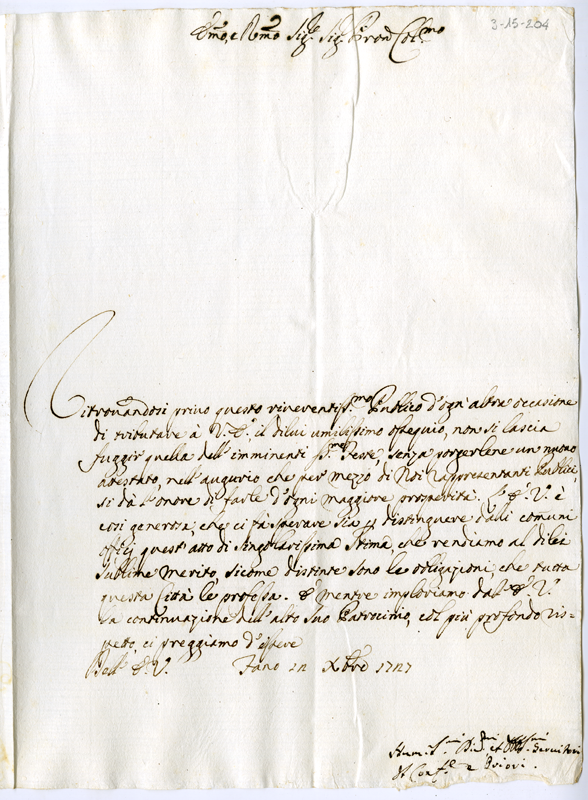 3-15-204
Em̃o, e Rm̃o Sig.r Sig.r P̃ron Col.mo
Ritrouãndosi priuo questo riuerentiss.mo Publico d'ogn'altra occasione
di tributare à V. E.a il dilui umilissimo ossequio, non si lascia
fuggir quella dell'imminenti S.me Feste, senza porgerlene un nuouo
attestato, nell'augurio che per mezzo di Noi rappresentanti Publici
si dà l'onore di farle d'ogni maggiore prosperità. L'E. V. è
così generosa, che ci fà sperare sia p distinguere dalli comuni
offizj quest'atto di singolarissima stima, che rendiamo al dilei
sublime merito, sicome distinte sono le obligazioni, che tutta
questa Città le professa. E mentre imploriamo dall'E. V.
la continuazione dell'alto suo Patrocinio, col più profondo ris=
petto, ci preggiamo d'essere
Dell'E. V. Fano 12 Xbre 1727
Hum.mi Di.mi et Servitori
Il Conf.re e Priori.